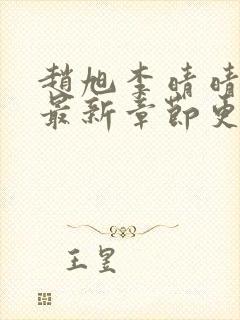 趙旭李晴晴
最新章節更
王昱